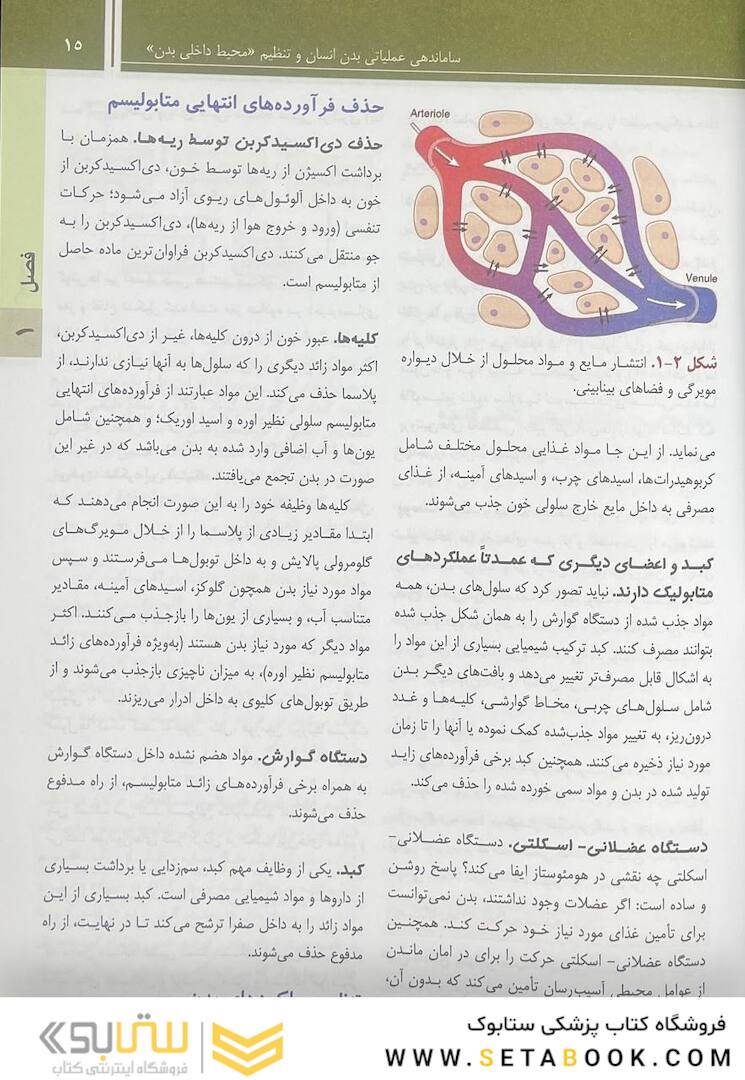 ۱۵
ساماندهی عملیاتی بدن انسان و تنظیم «محیط داخلی بدن»
Arteriole
Venule
شکل ۲-۱. انتشار مایع و مواد محلول از خلال دیواره
مویرگی و فضاهای بینابینی.
می‌نماید. از این جا مواد غذایی محلول مختلف شامل
کربوهیدرات‌ها، اسیدهای چرب، و اسیدهای آمینه، از غذای
مصرفی به داخل مایع خارج سلولی خون جذب می‌شوند.
کبد و اعضای دیگری که عمدتاً عملکردهای
متابولیک دارند. نباید تصور کرد که سلول‌های بدن، همه
مواد جذب شده از دستگاه گوارش را به همان شکل جذب شده
بتوانند مصرف کنند. کبد ترکیب شیمیایی بسیاری از این مواد را
به اشکال قابل مصرف‌تر تغییر می‌دهد و بافت‌های دیگر بدن
شامل سلول‌های چربی، مخاط گوارشی، کلیه‌ها و غدد
درون‌ریز، به تغییر مواد جذب‌شده کمک نموده یا آنها را تا زمان
مورد نیاز ذخیره می‌کنند. همچنین کبد برخی فرآورده‌های زاید
تولید شده در بدن و مواد سمی خورده شده را حذف می‌کند.
دستگاه عضلانی- اسکلتی. دستگاه عضلانی-
اسکلتی چه نقشی در هومئوستاز ایفا می‌کند؟ پاسخ روشن
و ساده است: اگر عضلات وجود نداشتند، بدن نمی‌توانست
برای تأمین غذای مورد نیاز خود حرکت کند. همچنین
دستگاه عضلانی- اسکلتی حرکت را برای در امان ماندن
از عوامل محیطی آسیب‌رسان تأمین می‌کند که بدون آن،
حذف فرآورده‌های انتهایی متابولیسم
حذف دی‌اکسیدکربن توسط ریه‌ها. همزمان با
برداشت اکسیژن از ریه‌ها توسط خون، دی‌اکسیدکربن از
خون به داخل آلوئول‌های ریوی آزاد می‌شود؛ حرکات
تنفسی (ورود و خروج هوا از ریه‌ها)، دی‌اکسیدکربن را به
جو منتقل می‌کنند. دی‌اکسیدکربن فراوان‌ترین ماده حاصل
از متابولیسم است.
کلیه‌ها. عبور خون از درون کلیه‌ها، غیر از دی‌اکسیدکربن،
اکثر مواد زائد دیگری را که سلول‌ها به آنها نیازی ندارند، از
پلاسما حذف می‌کند. این مواد عبارتند از فرآورده‌های انتهایی
متابولیسم سلولی نظیر اوره و اسید اوریک؛ و همچنین شامل
یون‌ها و آب اضافی وارد شده به بدن می‌باشد که در غیر این
صورت در بدن تجمع می‌یافتند.
کلیه‌ها وظیفه خود را به این صورت انجام می‌دهند که
ابتدا مقادیر زیادی از پلاسما را از خلال مویرگ‌های
گلومرولی پالایش و به داخل توبول‌ها می‌فرستند و سپس
مواد مورد نیاز بدن همچون گلوکز، اسیدهای آمینه، مقادیر
متناسب آب، و بسیاری از یون‌ها را بازجذب می‌کنند. اکثر
مواد دیگر که مورد نیاز بدن هستند (به‌ویژه فرآورده‌های زائد
متابولیسم نظیر اوره)، به میزان ناچیزی بازجذب می‌شوند و از
طریق توبول‌های کلیوی به داخل ادرار می‌ریزند.
دستگاه گوارش. مواد هضم نشده داخل دستگاه گوارش
به همراه برخی فرآورده‌های زائد متابولیسم، از راه مدفوع
حذف می‌شوند.
کبد. یکی از وظایف مهم کبد، سم‌زدایی یا برداشت بسیاری
از داروها و مواد شیمیایی مصرفی است. کبد بسیاری از این
مواد زائد را به داخل صفرا ترشح می‌کند تا در نهایت، از راه
مدفوع حذف می‌شوند.
فصل
۱
فروشگاه کتاب پزشکی ستابوک
WWW.SETABOOK.COM
ستابوک
فروشگاه اینترنتی کتاب